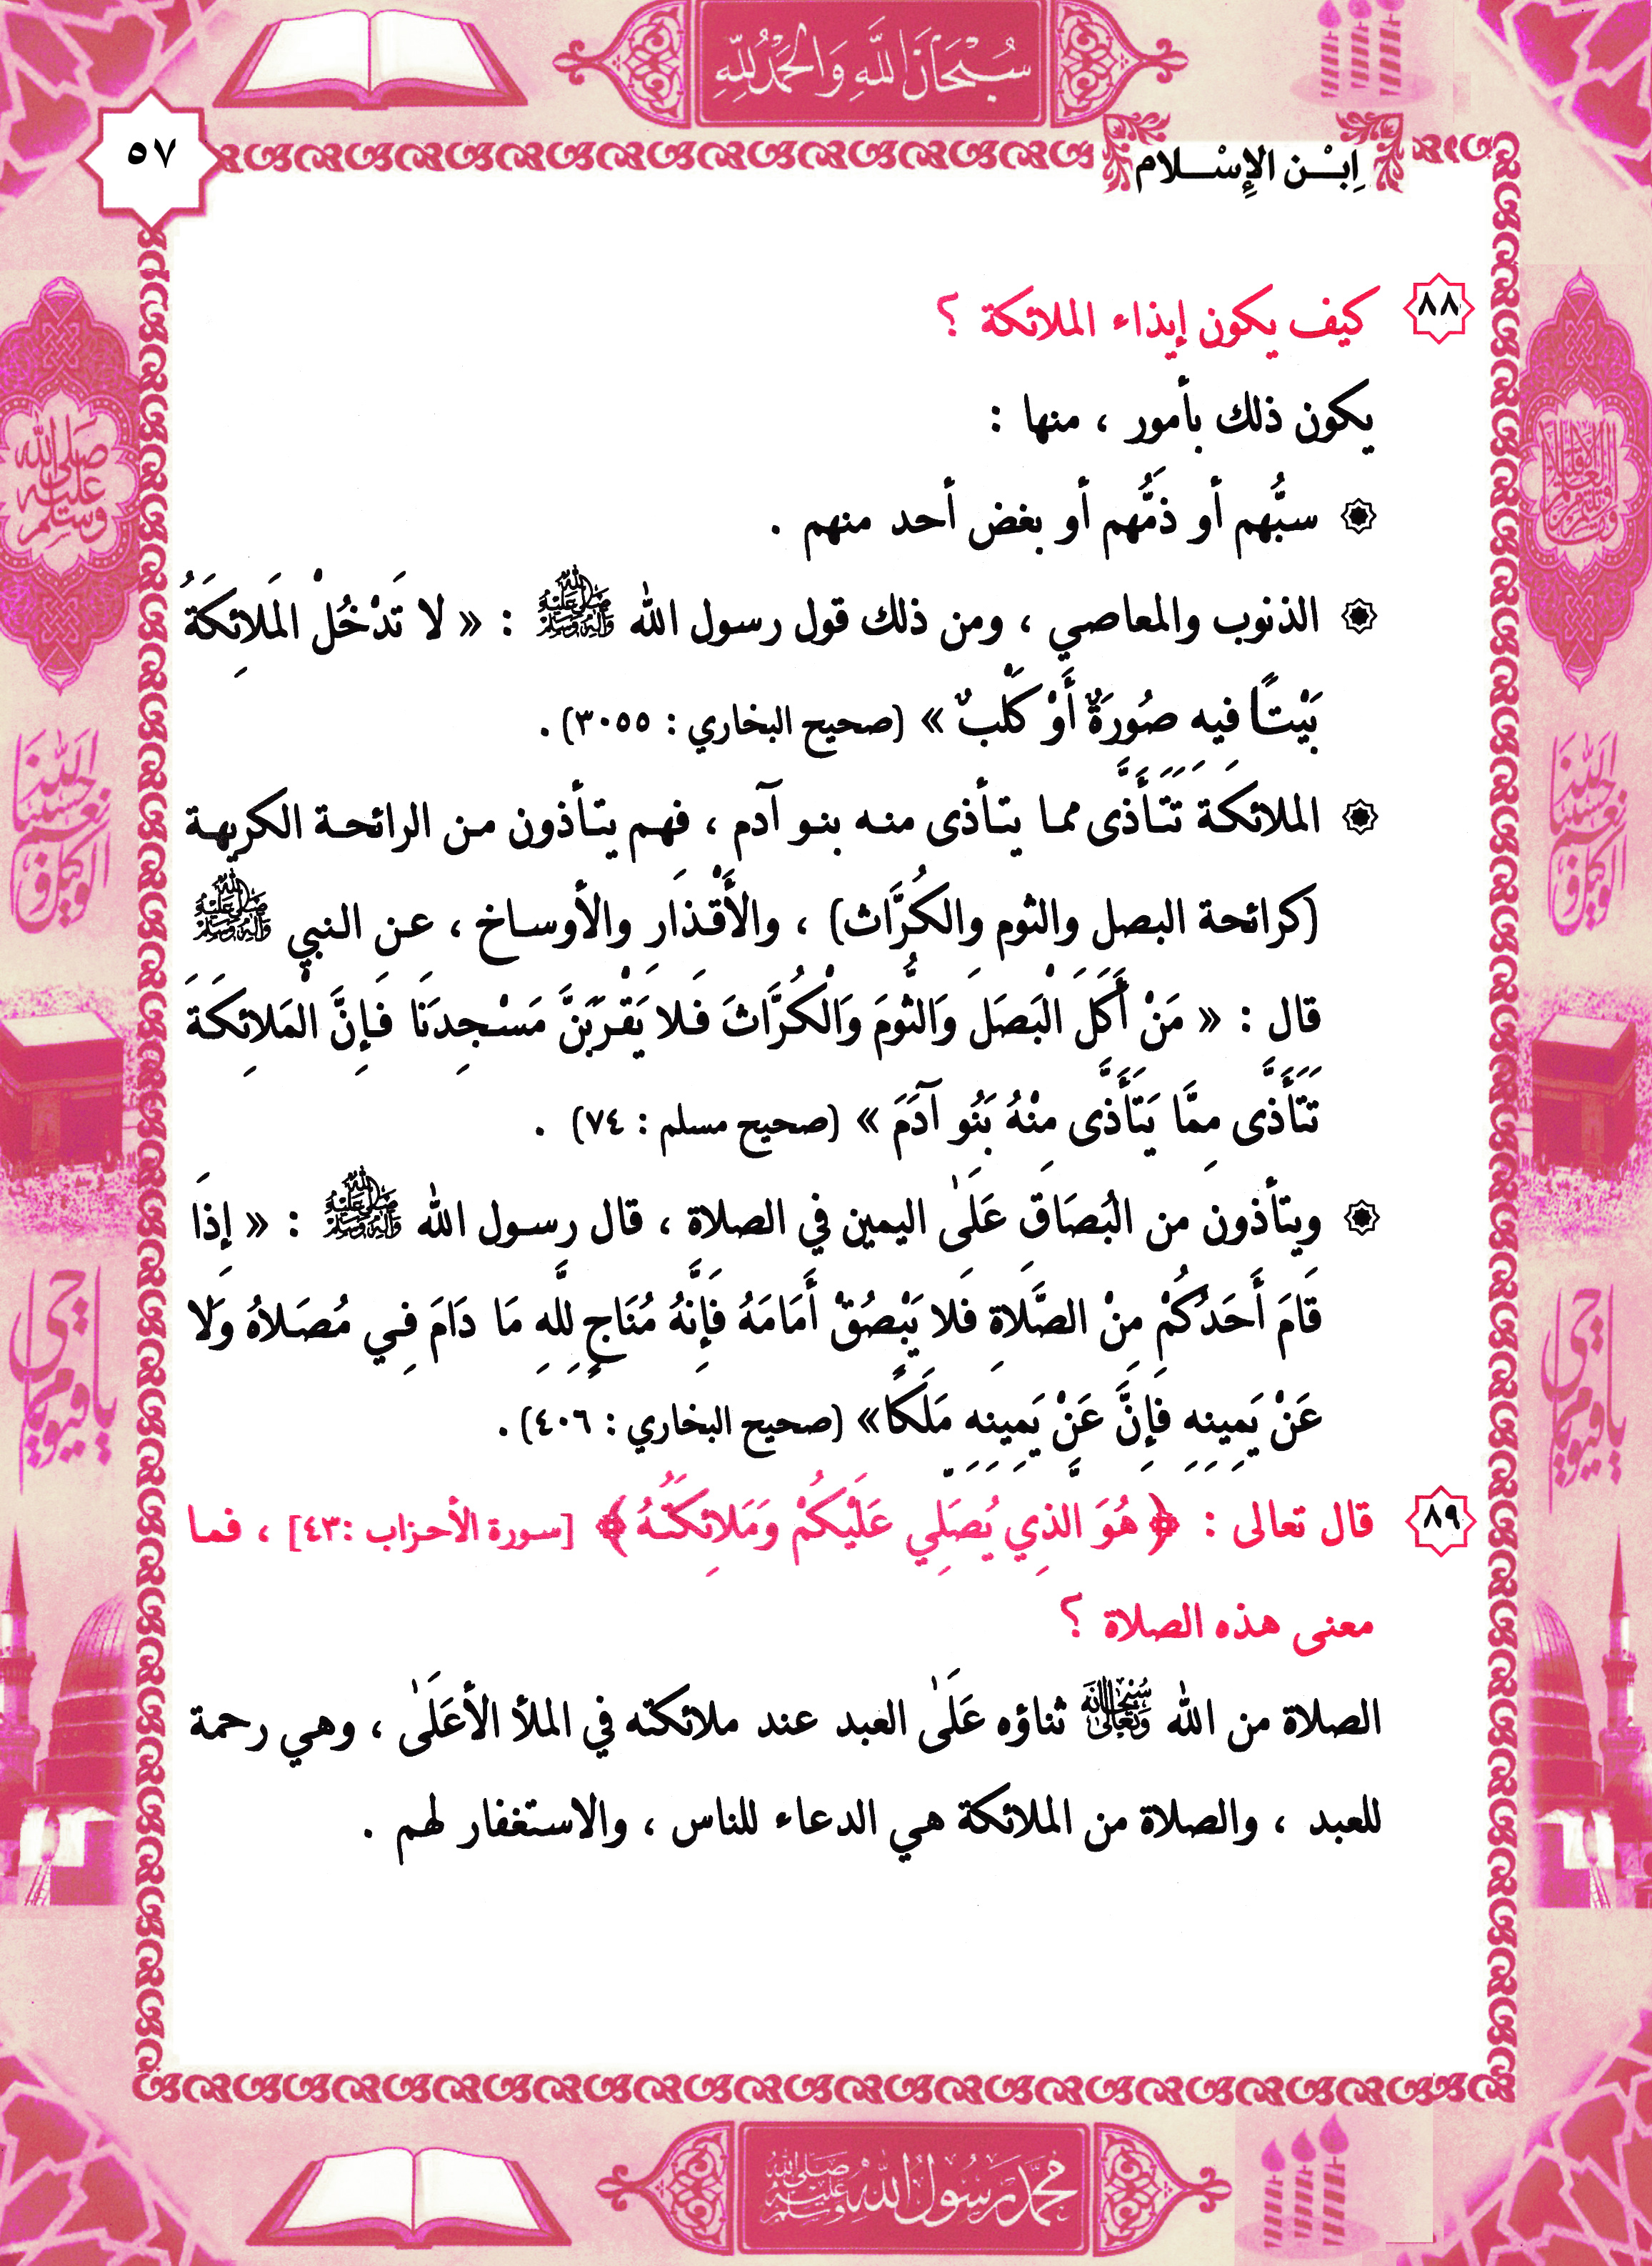 سُبْحَانَ اللَّهِ وَالْحَمْدُ لِلَّهِ
٥٧
اِبْـن الإِسْـلام
٨٨ كيف يكون إيذاء الملائكة ؟
يكون ذلك بأمور ، منها :
سبُّهم أو ذَمُّهم أو بغض أحد منهم .
الذنوب والمعاصي ، ومن ذلك قول رسول الله ﷺ : « لا تَدْخُلْ المَلائِكَةُ
بَيْتًا فيه صُورَةٌ أَوْ كَلْبٌ » (صحيح البخاري : ٣٠٥٥) .
الملائكَة تَتَأَذَّى مما يتأذى منه بنو آدم ، فهم يتأذون من الرائحة الكريهة
(كرائحة البصل والثوم والكُرَّاث) ، والأَقْذَارِ والأوساخ ، عن النبي ﷺ
قال : « مَنْ أَكَلَ الْبَصَلَ وَالثُّومَ وَالْكُرَّاثَ فَلا يَقْرَبَنَّ مَسْجِدَنَا فَإِنَّ الْمَلائِكَةَ
تَتَأَذَّى مِمَّا يَتَأَذَّى مِنْهُ بَنُو آدَمَ » (صحيح مسلم : ٧٤) .
ويتأذون من البُصَاقِ عَلَى اليمين في الصلاة ، قال رسول الله ﷺ : « إِذَا
قَامَ أَحَدُكُمْ مِنْ الصَّلاةِ فَلا يَبْصُقْ أَمَامَهُ فَإِنَّهُ مُنَاجٍ لِلَّهِ مَا دَامَ فِي مُصَلاهُ وَلا
عَنْ يَمِينِهِ فَإِنَّ عَنْ يَمِينِهِ مَلَكًا» (صحيح البخاري : ٤٠٦) .
٨٩ قال تعالى : ﴿هُوَ الذِي يُصَلِي عَلَيْكُمْ وَمَلائِكَتُهُ﴾ [سورة الأحزاب :٤٣] ، فما
معنى هذه الصلاة ؟
الصلاة من الله سُبْحَانَهُ وَتَعَالَى ثناؤه عَلَى العبد عند ملائكته في الملأ الأعَلَى ، وهي رحمة
للعبد ، والصلاة من الملائكة هي الدعاء للناس ، والاستغفار لهم .
صلى الله عليه وسلم
حسبنا الله ونعم الوكيل
حسبنا الله ونعم الوكيل
يا حي يا قيوم
يا حي يا قيوم
محمد رسول الله صلى الله عليه وسلم